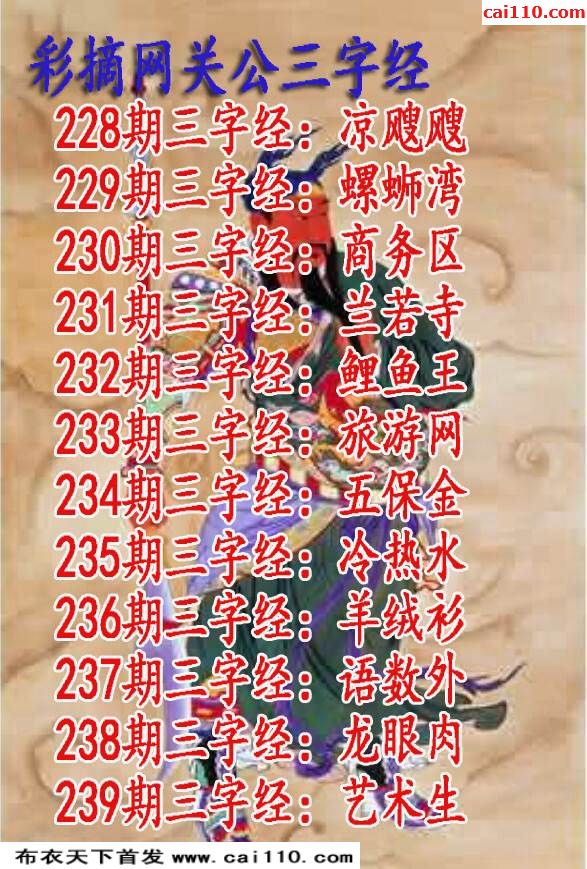 cai110.com
彩摘网关公三字经
228期三字经：凉飕飕
229期三字经：螺蛳湾
230期三字经：商务区
231期三字经：兰若寺
232期三字经：鲤鱼王
233期三字经：旅游网
234期三字经：五保金
235期三字经：冷热水
236期三字经：羊绒衫
237期三字经：语数外
238期三字经：龙眼肉
239期三字经：艺术生
布衣天下首发 www.cai110.com